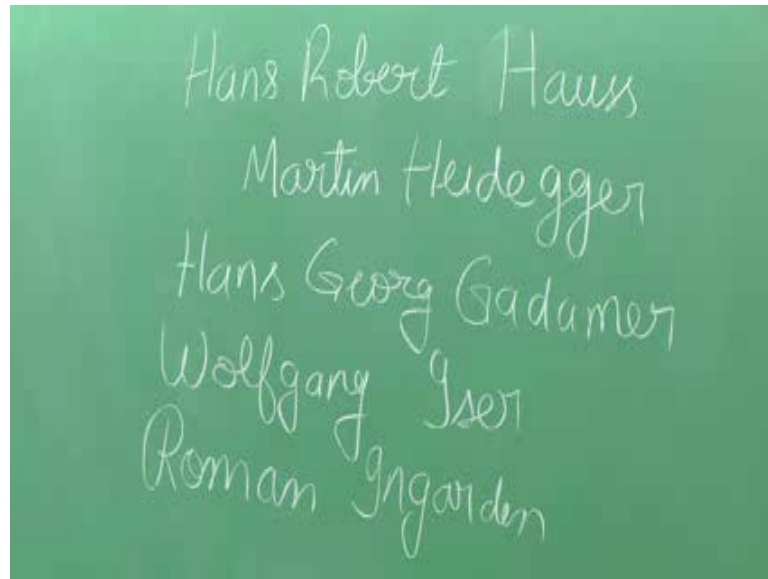 Hans Robert Hauss
Martin Heidegger
Hans Georg Gadamer
Wolfgang Iser
Roman Ingarden